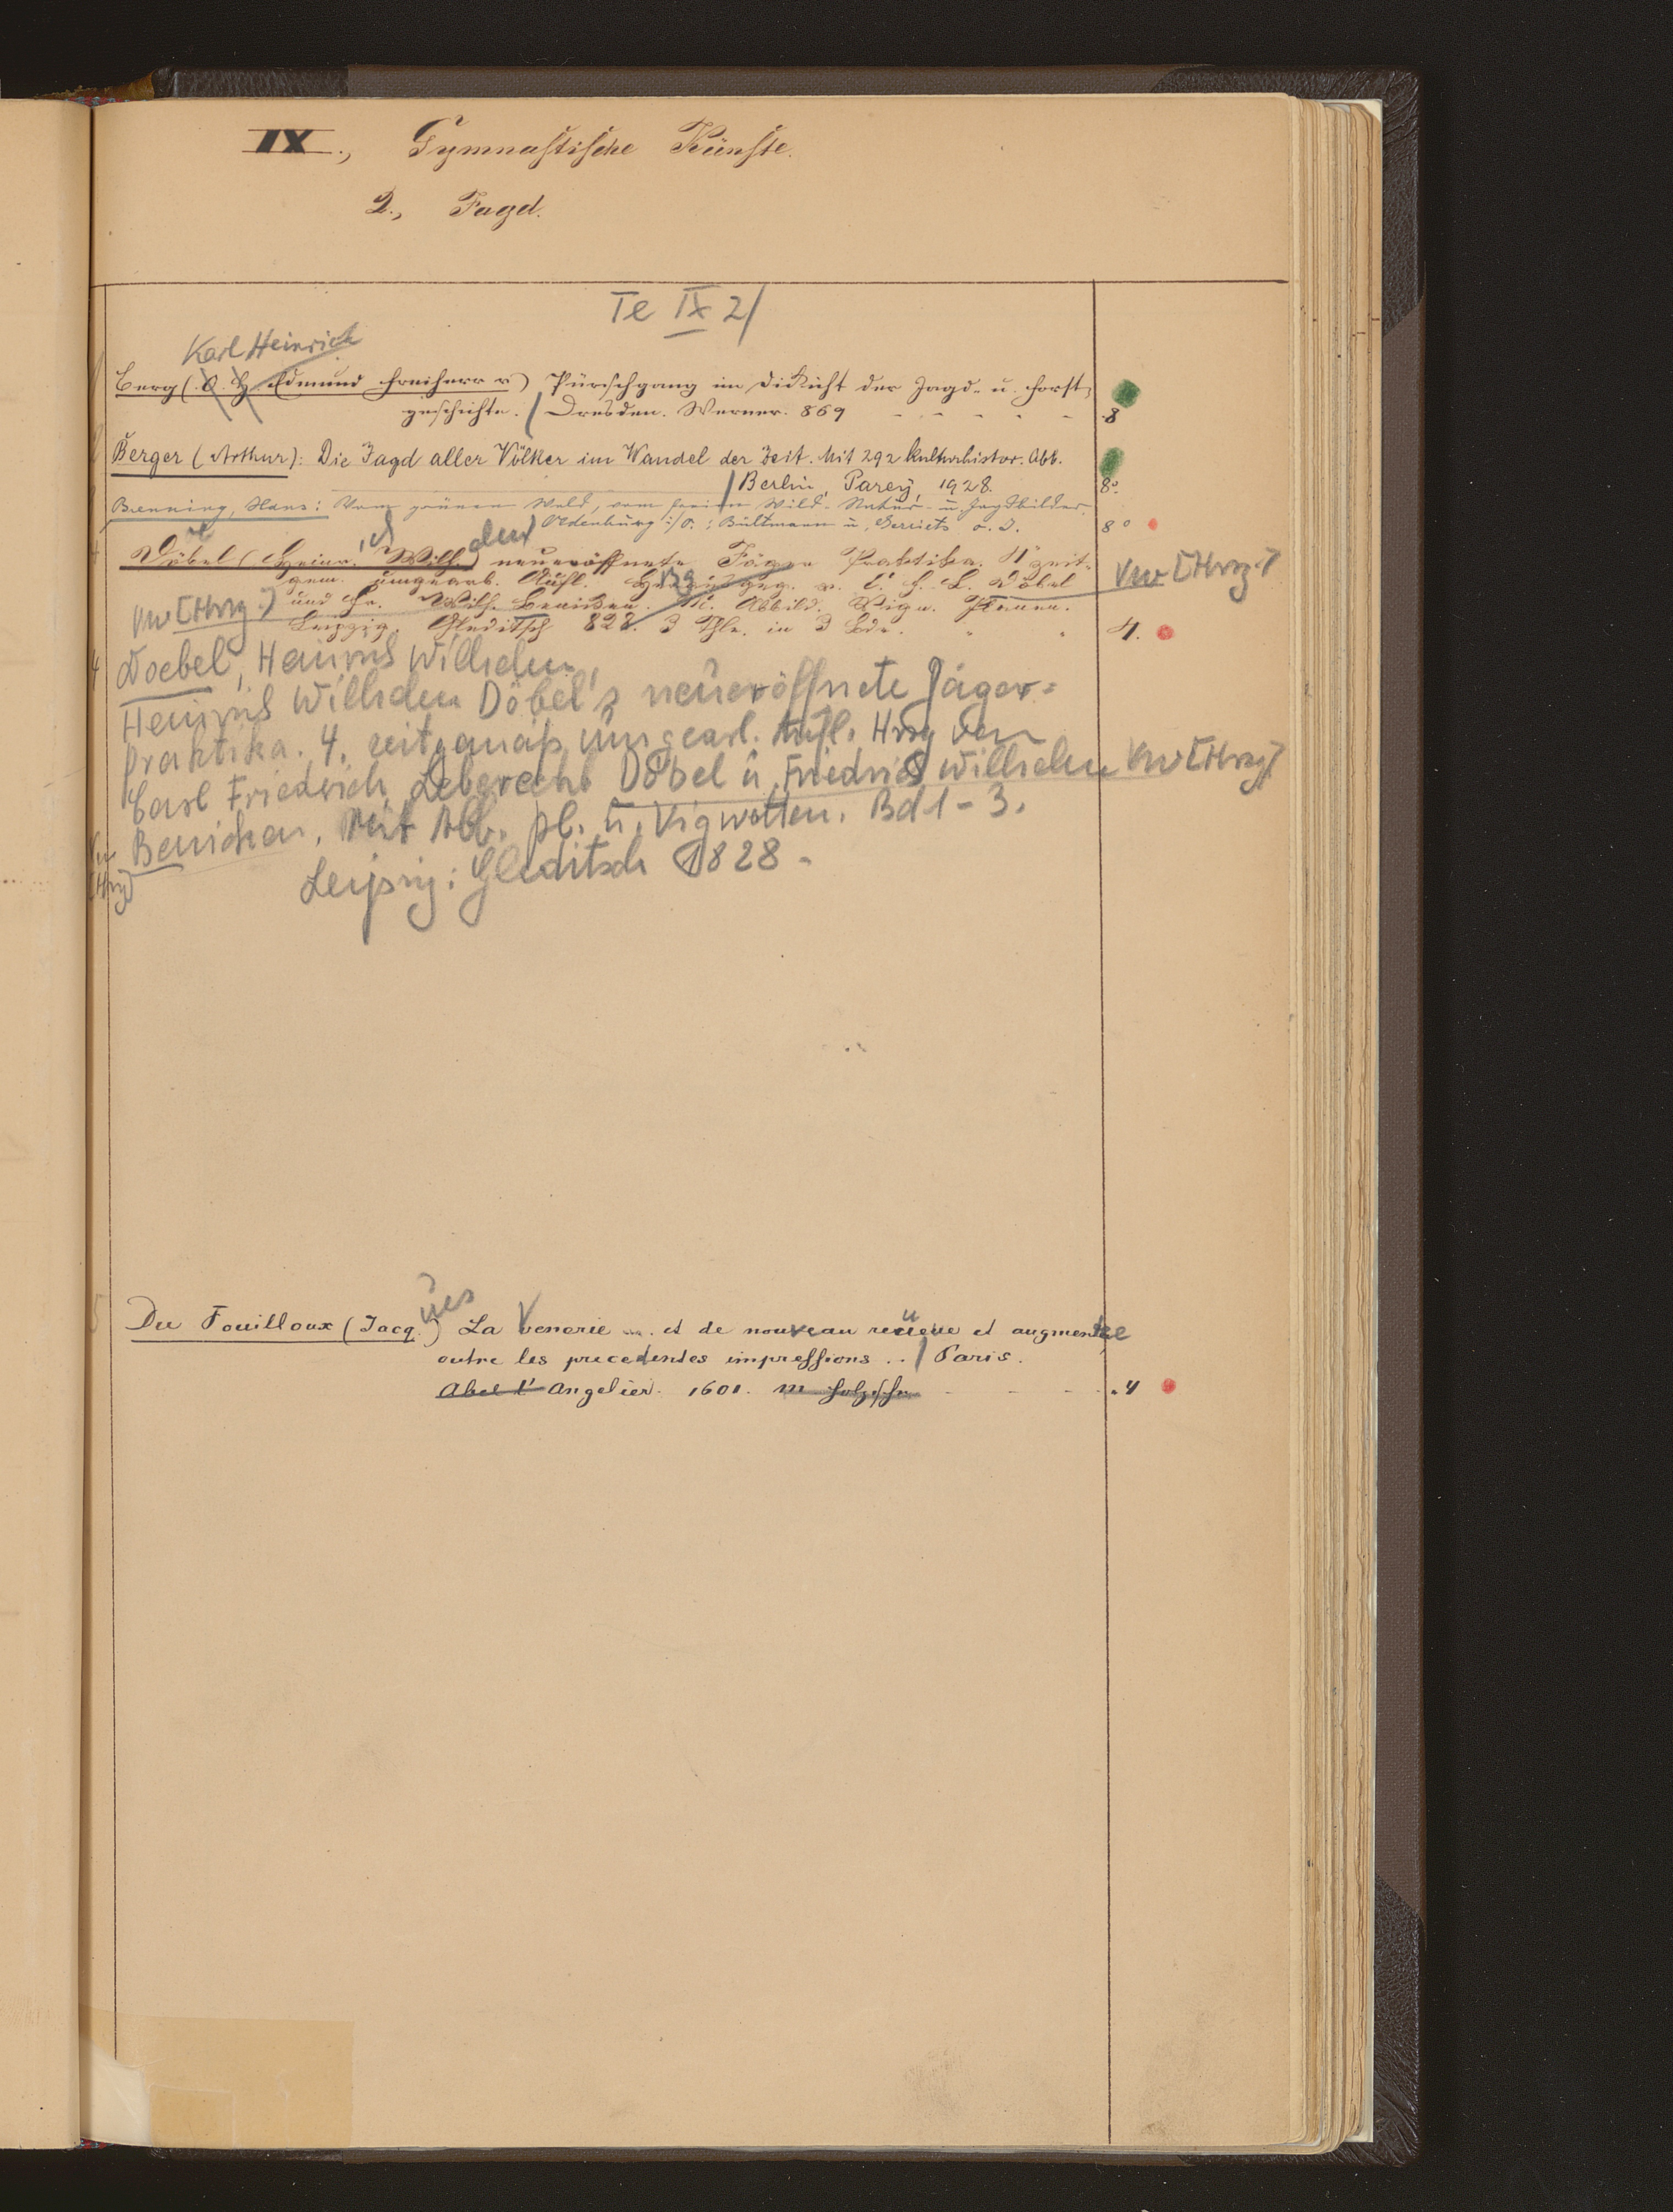 IX., Gymnastische Künste.
2., Jagd.
Te IX 2/
Karl Heinrich
Berg (C. H. Edmund Freiherr v.) Pürschgang im Dickicht der Jagd- u. Forst-
geschichte. / Dresden. Werner. 869 - - - - - 8
Berger (Arthur): Die Jagd aller Völker im Wandel der Zeit. Mit 292 kulturhistor. Abb.
/ Berlin, Parey, 1928. 8°.
Brenning, Hans: Vom grünen Wald, vom freien Wild. Natur- u. Jagdbilder.
Oldenburg i/O.: Bültmann u. Gerriets o. J. 8°
Döbel (Heinr. Wilh.) neueröffnete Jäger Praktika. 4e zeit-
gem. umgearb. Aufl. Herausgeg. v. C. F. L. Döbel VW [Hrsg.]
VW [Hrsg.] und Fr. Wilh. Benicken. M. Abbild. Vign. Plänen.
Leipzig. Gleditsch 828. 3 Thle. in 3 Bde. 4.
4 Doebel, Heinrich Wilhelm,
Heinrich Wilhelm Döbel's neueröffnete Jäger=
praktika. 4. zeitgemäß umgearb. Aufl. Hrsg von
Carl Friedrich Leberecht Döbel u. Friedrich Wilhelm VW [Hrsg]
Benicken. Mit Abb. pl. u. Vignetten. Bd 1-3.
Leipzig: Gleditsch 1828.
Du Fouilloux (Jacques) La Venerie ... et de nouveau reueue et augmentee
outre les precedentes impressions .. / Paris.
Abel l'Angelier. 1601. m Holzschn. - - - 4